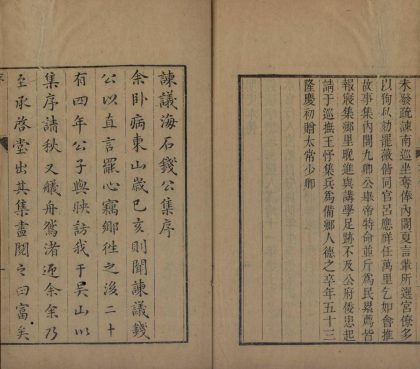 未發疏諫南巡坐奪俸內閣夏言輩所選宮僚多
以徇以劾罷薇偕同官呂應祥任萬里乞如會推
故事集內閣九卿公舉帝特命並斥為民累薦皆
報寢集鄉里晚進與講學足跡不及公府倭患起
請于巡撫王忬集兵為備鄉人德之卒年五十三
隆慶初贈太常少卿
諫議海石錢公集序
余卧病東山歲己亥則聞諫議錢
公以直言罷心竊鄉往之後二十
有四年公子與映訪我于吳山以
集序請秋又艤舟鴛渚余余乃
至承啓堂出其集盡閱之曰富矣
序